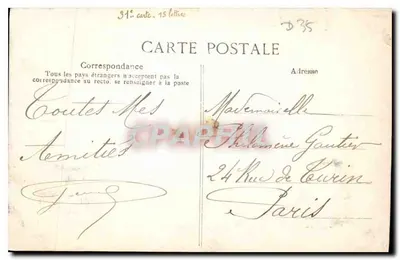 31e carte. 13 lettre
D 35
CARTE POSTALE
Correspondance
Tous les pays étrangers n'acceptent pas la
correspondance au recto, se renseigner à la poste
Adresse
Toutes Mes
Amitiés
Mademoiselle
Philomène Gautier
24 Rue de Turin
Paris